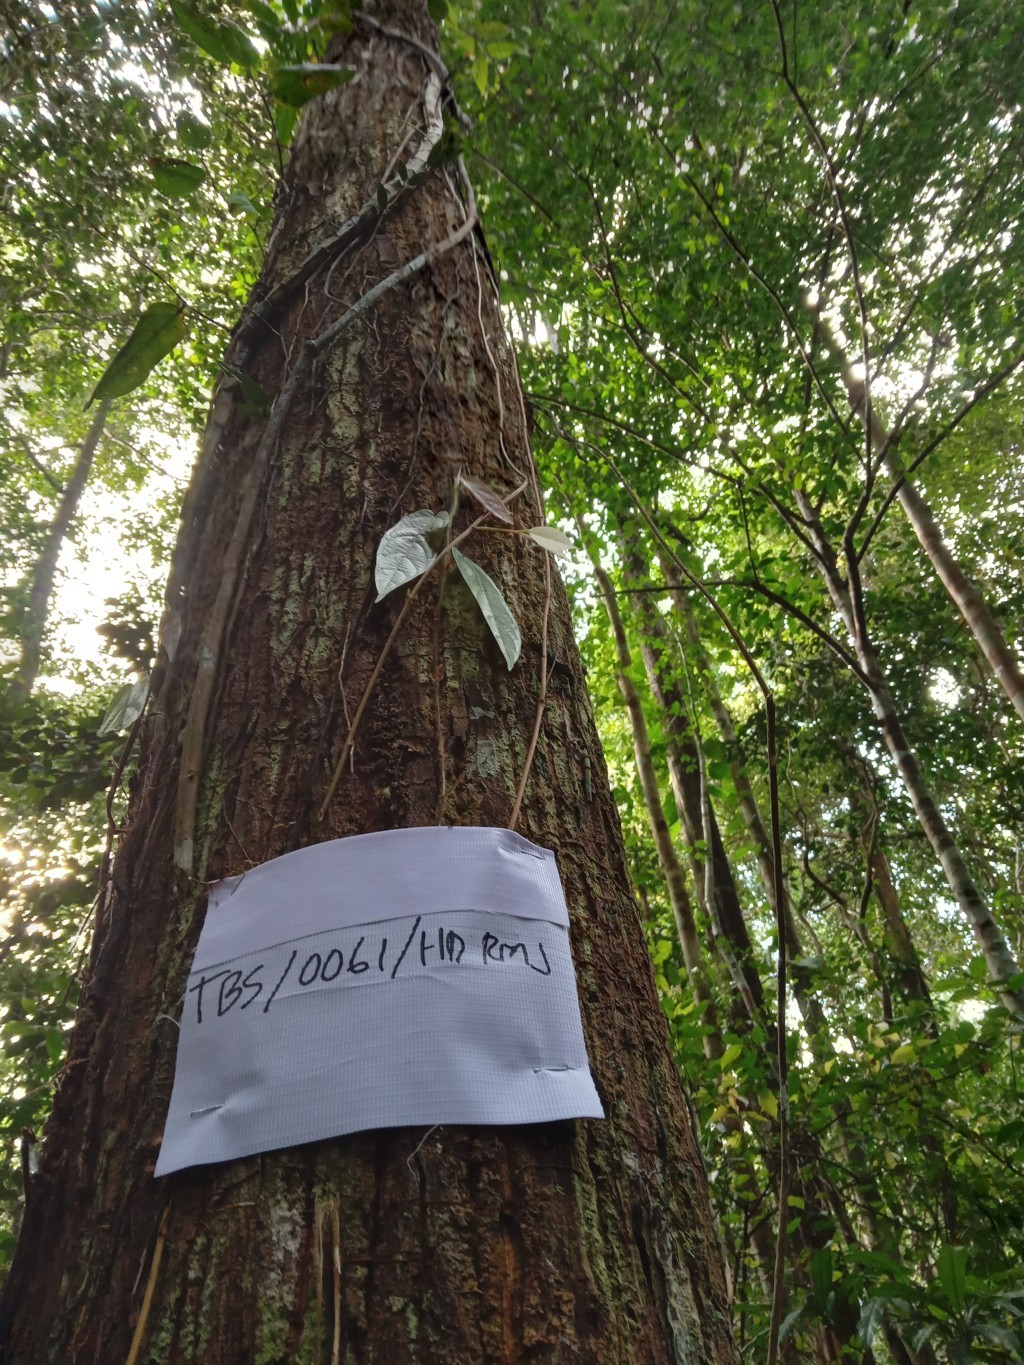 TBS/0061/HA RMJ